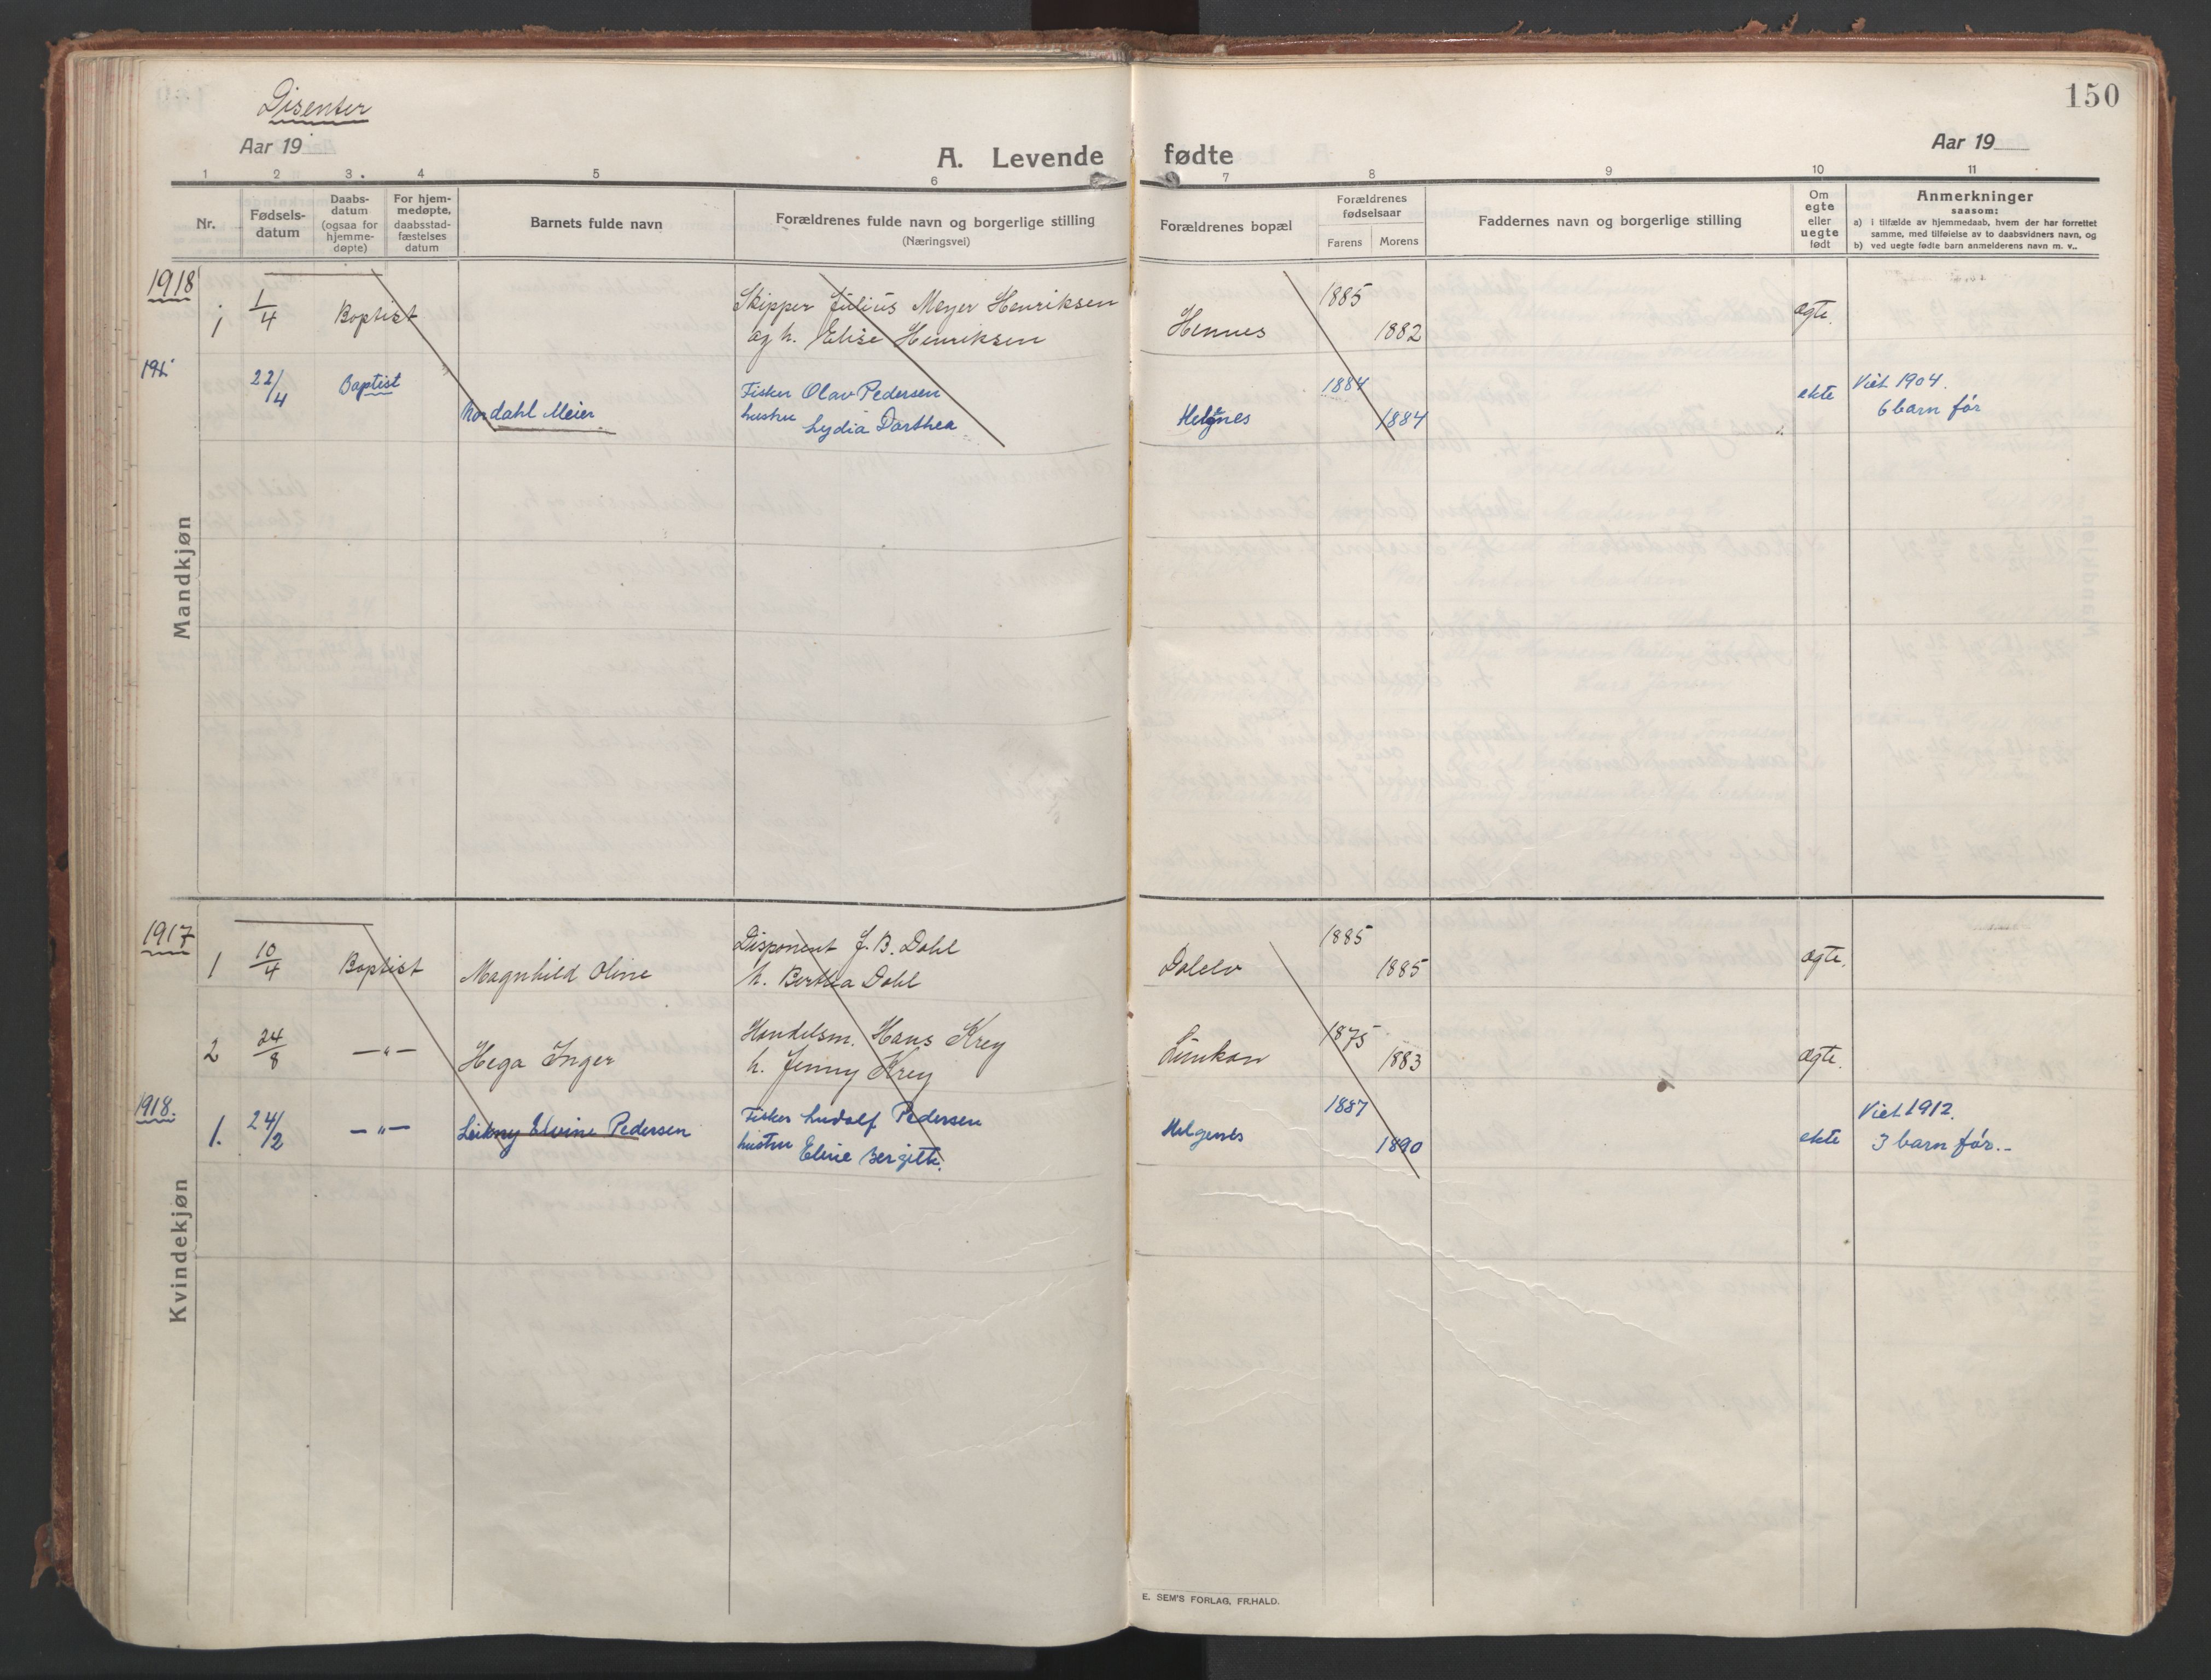 150
Disenter
Aar 19
A. Levende fødte
Aar 19
1 2 3. 4 5 6 7 8 9 10 11
Nr.
Fødsels-
datum
Daabs-
datum
(ogsaa for
hjemme-
døpte)
For hjem-
medøpte,
daabsstad-
fæstelses
datum
Barnets fulde navn
Forældrenes fulde navn og borgerlige stilling
(Næringsvei)
Forældrenes bopæl
Forældrenes
fødselsaar
Farens Morens
Faddernes navn og borgerlige stilling
Om
egte
eller
uegte
født
Anmerkninger
saasom:
a) i tilfælde av hjemmedaab, hvem der har forrettet
samme, med tilføielse av to daabsvidners navn, og
b) ved uegte fødte barn anmelderens navn m. v..
Mandkjøn
1918
1 1/4 Baptist Skipper Julius Meyer Henriksen 1885 ægte.
og h. Elise Henriksen Hennes 1882
22/4 Baptist Fisker Olav Pedersen 1884 ekte Viet 1904.
Nordahl Meier hustru Lydia Dorthea Helgnes 1884 6 barn før
Kvindekjøn
1917
1 10/4 Baptist Magnhild Oline Disponent J. B. Dahl 1885 ægte.
h. Berthea Dahl 1885
2 24/8 —"— Hega Inger Handelsm. Hans Krey 1875 ægte.
h. Jenny Krey 1883
1918.
1. 24/2 —"— Leikny Elvine Pedersen Fisker Ludolf Pedersen 1887 ekte Viet 1912.
hustru Eline Bergitte. Helgenes 1890 3 barn før..
E. SEM'S FORLAG, FR.HALD.